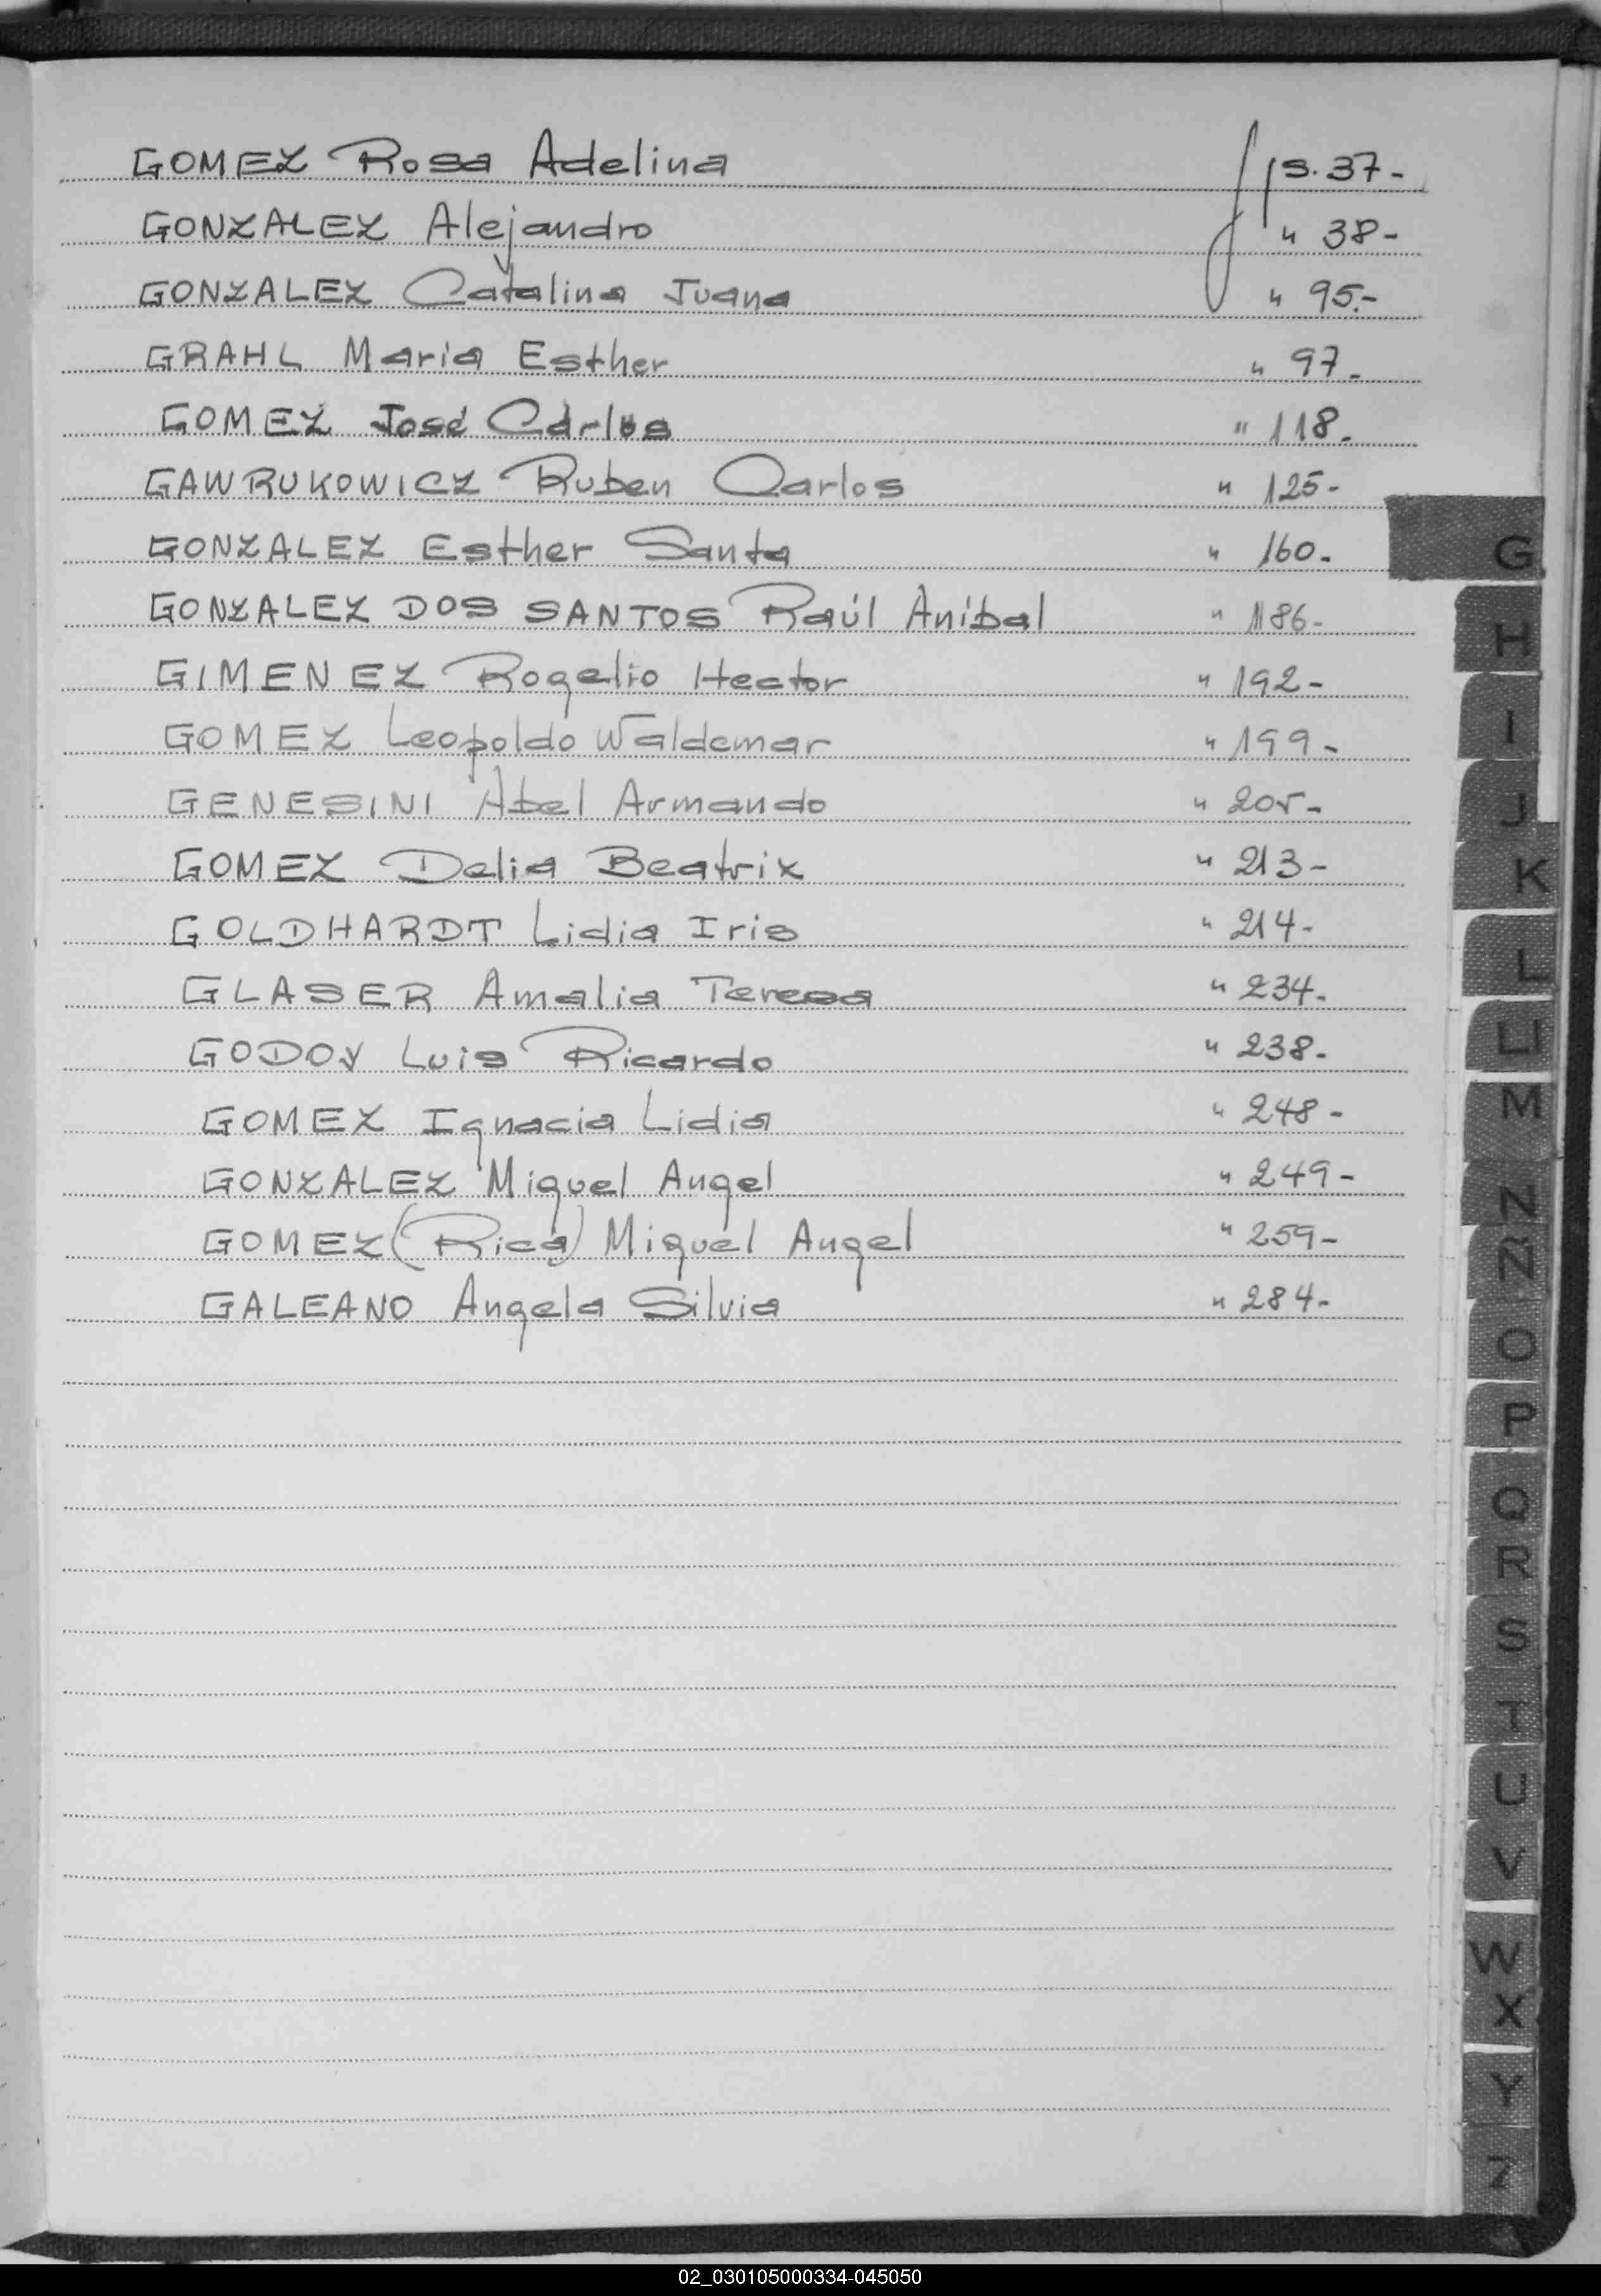 GOMEZ Rosa Adelina fjs. 37-
GONZALEZ Alejandro " 38-
GONZALEZ Catalina Juana " 95.-
GRAHL Maria Esther " 97-
GOMEZ José Carlos " 118-
GAWRUKOWICZ Ruben Carlos " 125-
GONZALEZ Esther Santa " 160-
GONZALEZ DOS SANTOS Raúl Aníbal " 186-
GIMENEZ Rogelio Hector " 192-
GOMEZ Leopoldo Waldemar " 199-
GENESINI Abel Armando " 205-
GOMEZ Delia Beatrix " 213-
GOLDHARDT Lidia Iris " 214-
GLASER Amalia Teresa " 234-
GODOY Luis Ricardo " 238-
GOMEZ Ignacia Lidia " 248-
GONZALEZ Miguel Angel " 249-
GOMEZ (Rica) Miguel Angel " 259-
GALEANO Angela Silvia " 284-
G
H
I
J
K
L
LL
M
N
Ñ
O
P
Q
R
S
T
U
V
W
X
Y
Z
02_030105000334-045050